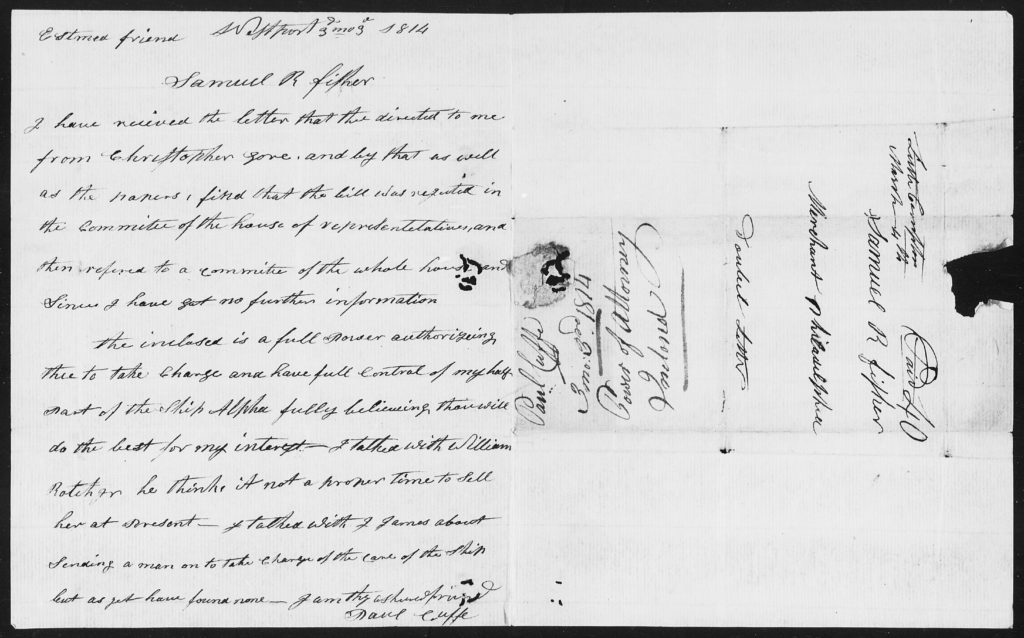 Estmed friend Westport 3d mo 3d 1814
Samuel R fisher
I have recieved the letter that thee directed to me
from Christopher Gore, and by that as well
as the papers, I find that the bill was rejected in
the Committee of the house of representetatives, and
then refered to a committe of the whole house and
Since I have got no further information
the inclosed is a full Power authorizeing
thee to take Charge and have full Control of my half
Part of the Ship Alpha fully believing thou will
do the best for my interest — I talked with William
Rotch Jr he thinks it not a proper time to Sell
her at present — I talked with J James about
Sending a man on to take Charge of the Care of the Ship
but as yet have found none — I am thy ashured frind
Paul Cuffe
Paul Cuffe
3 mo 3d 1814
power of Attorney
March 4th
Paid 40
Samuel R fisher
Merchant Philadelphia
Doubel Letter